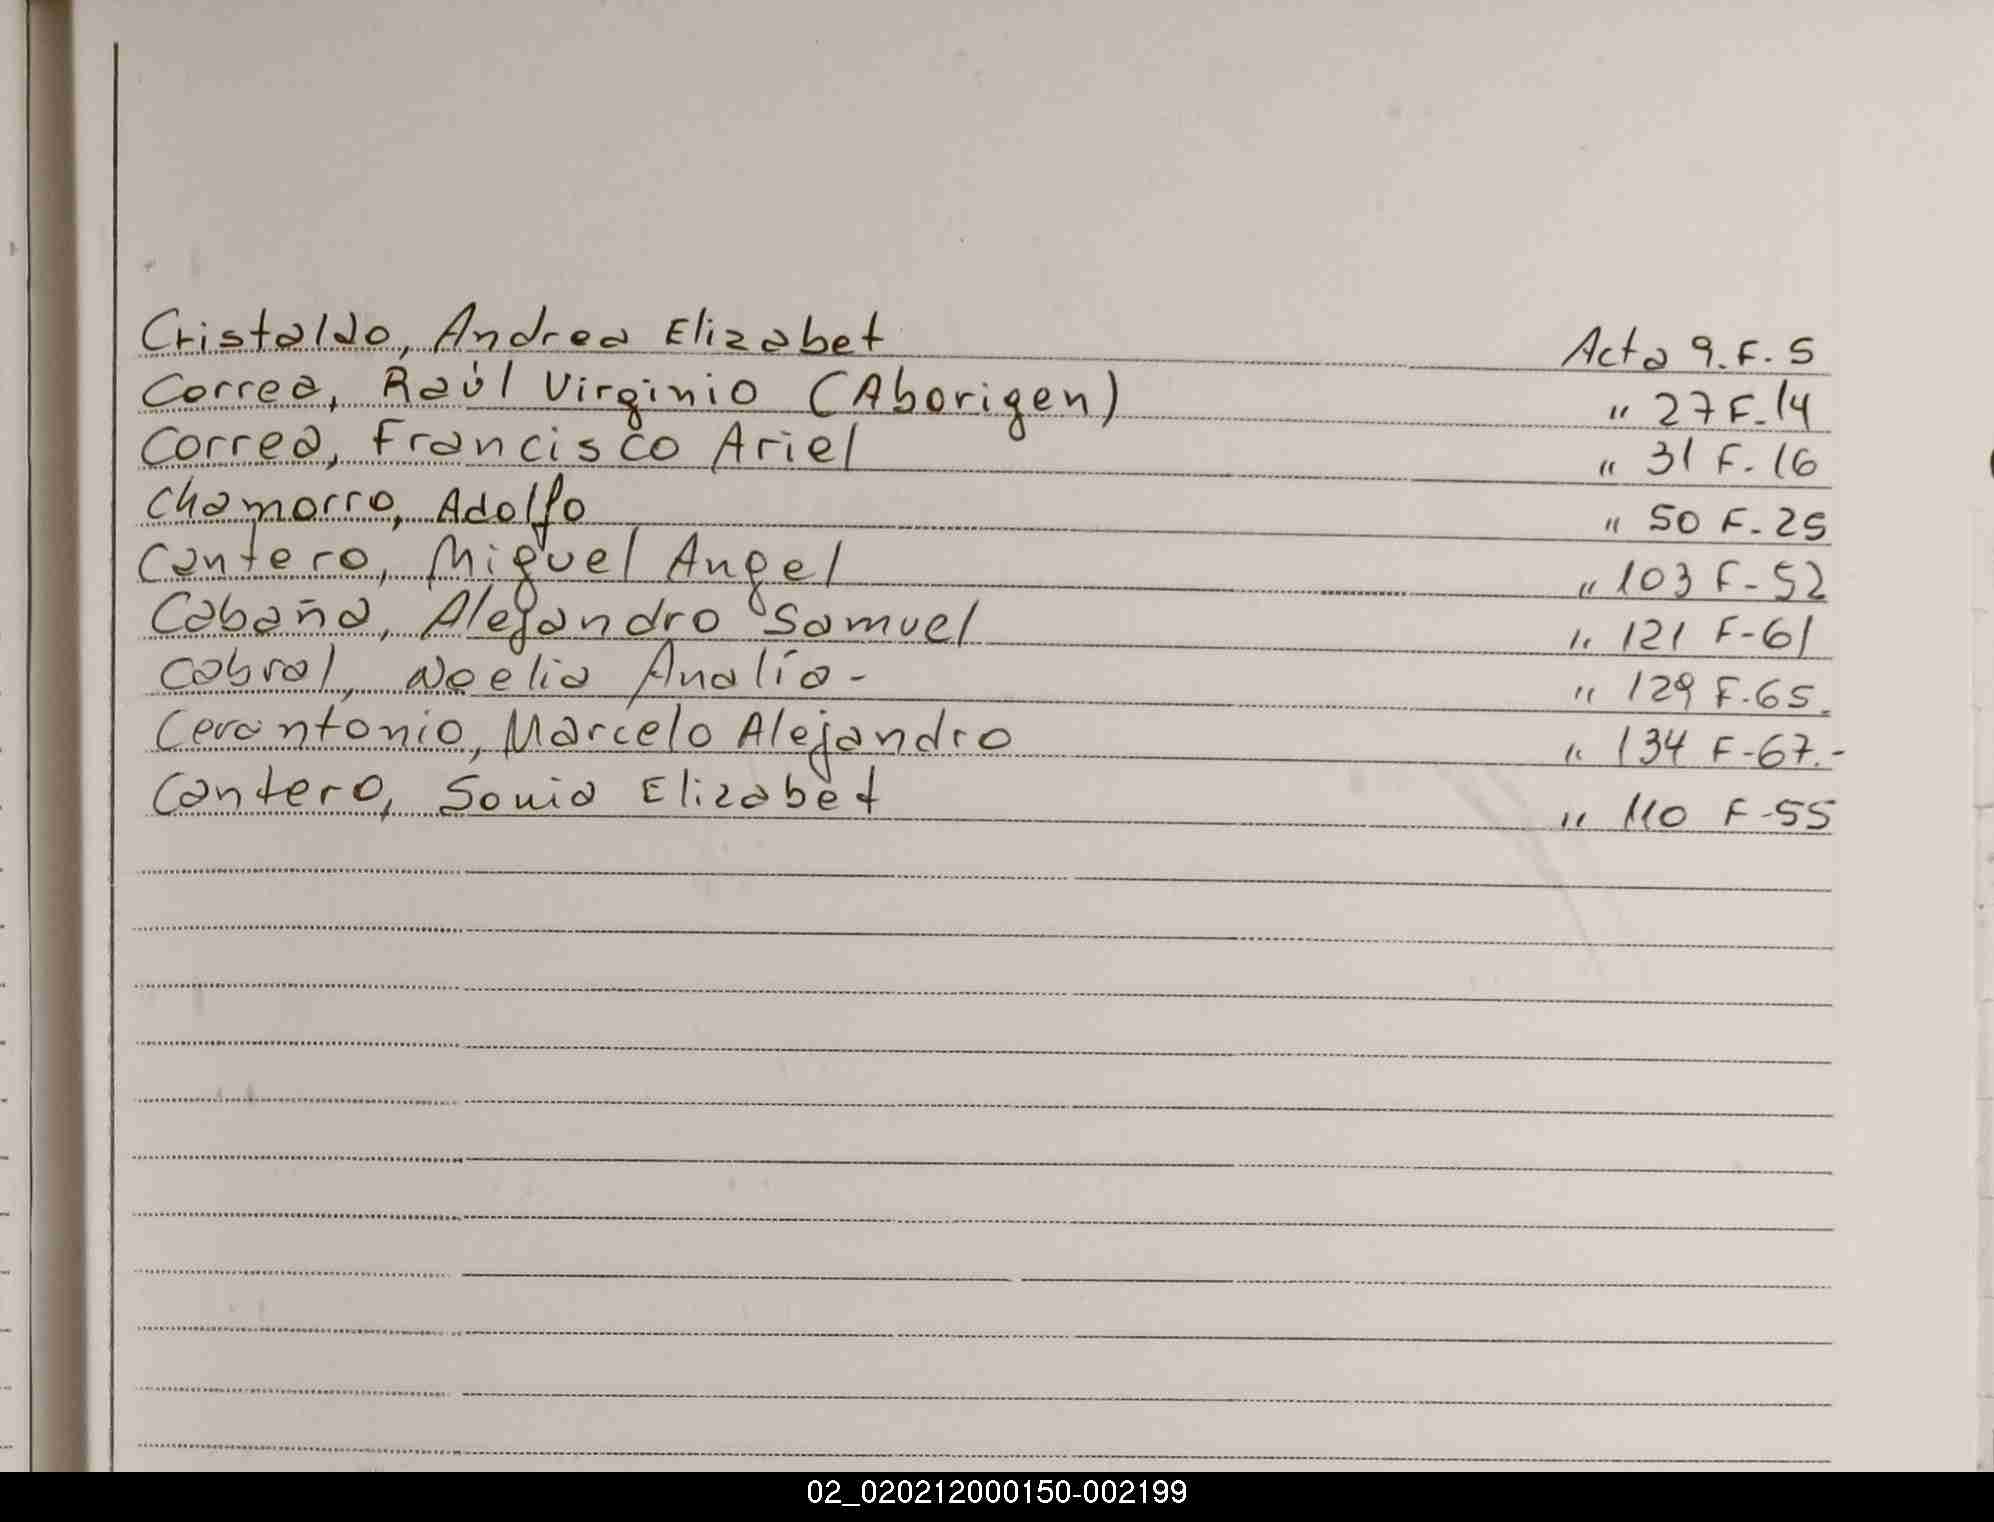 Cristaldo, Andrea Elizabet Acta 9. F. 5
Correa, Raúl Virginio (Aborigen) " 27 F-14
Correa, Francisco Ariel " 31 F-16
Chamorro, Adolfo " 50 F-25
Cantero, Miguel Angel " 103 F-52
Cabaña, Alejandro Samuel " 121 F-61
Cabral, Noelia Analía - " 129 F-65.
Cerantonio, Marcelo Alejandro " 134 F-67.-
Cantero, Sonia Elizabet " 110 F-55
02_020212000150-002199